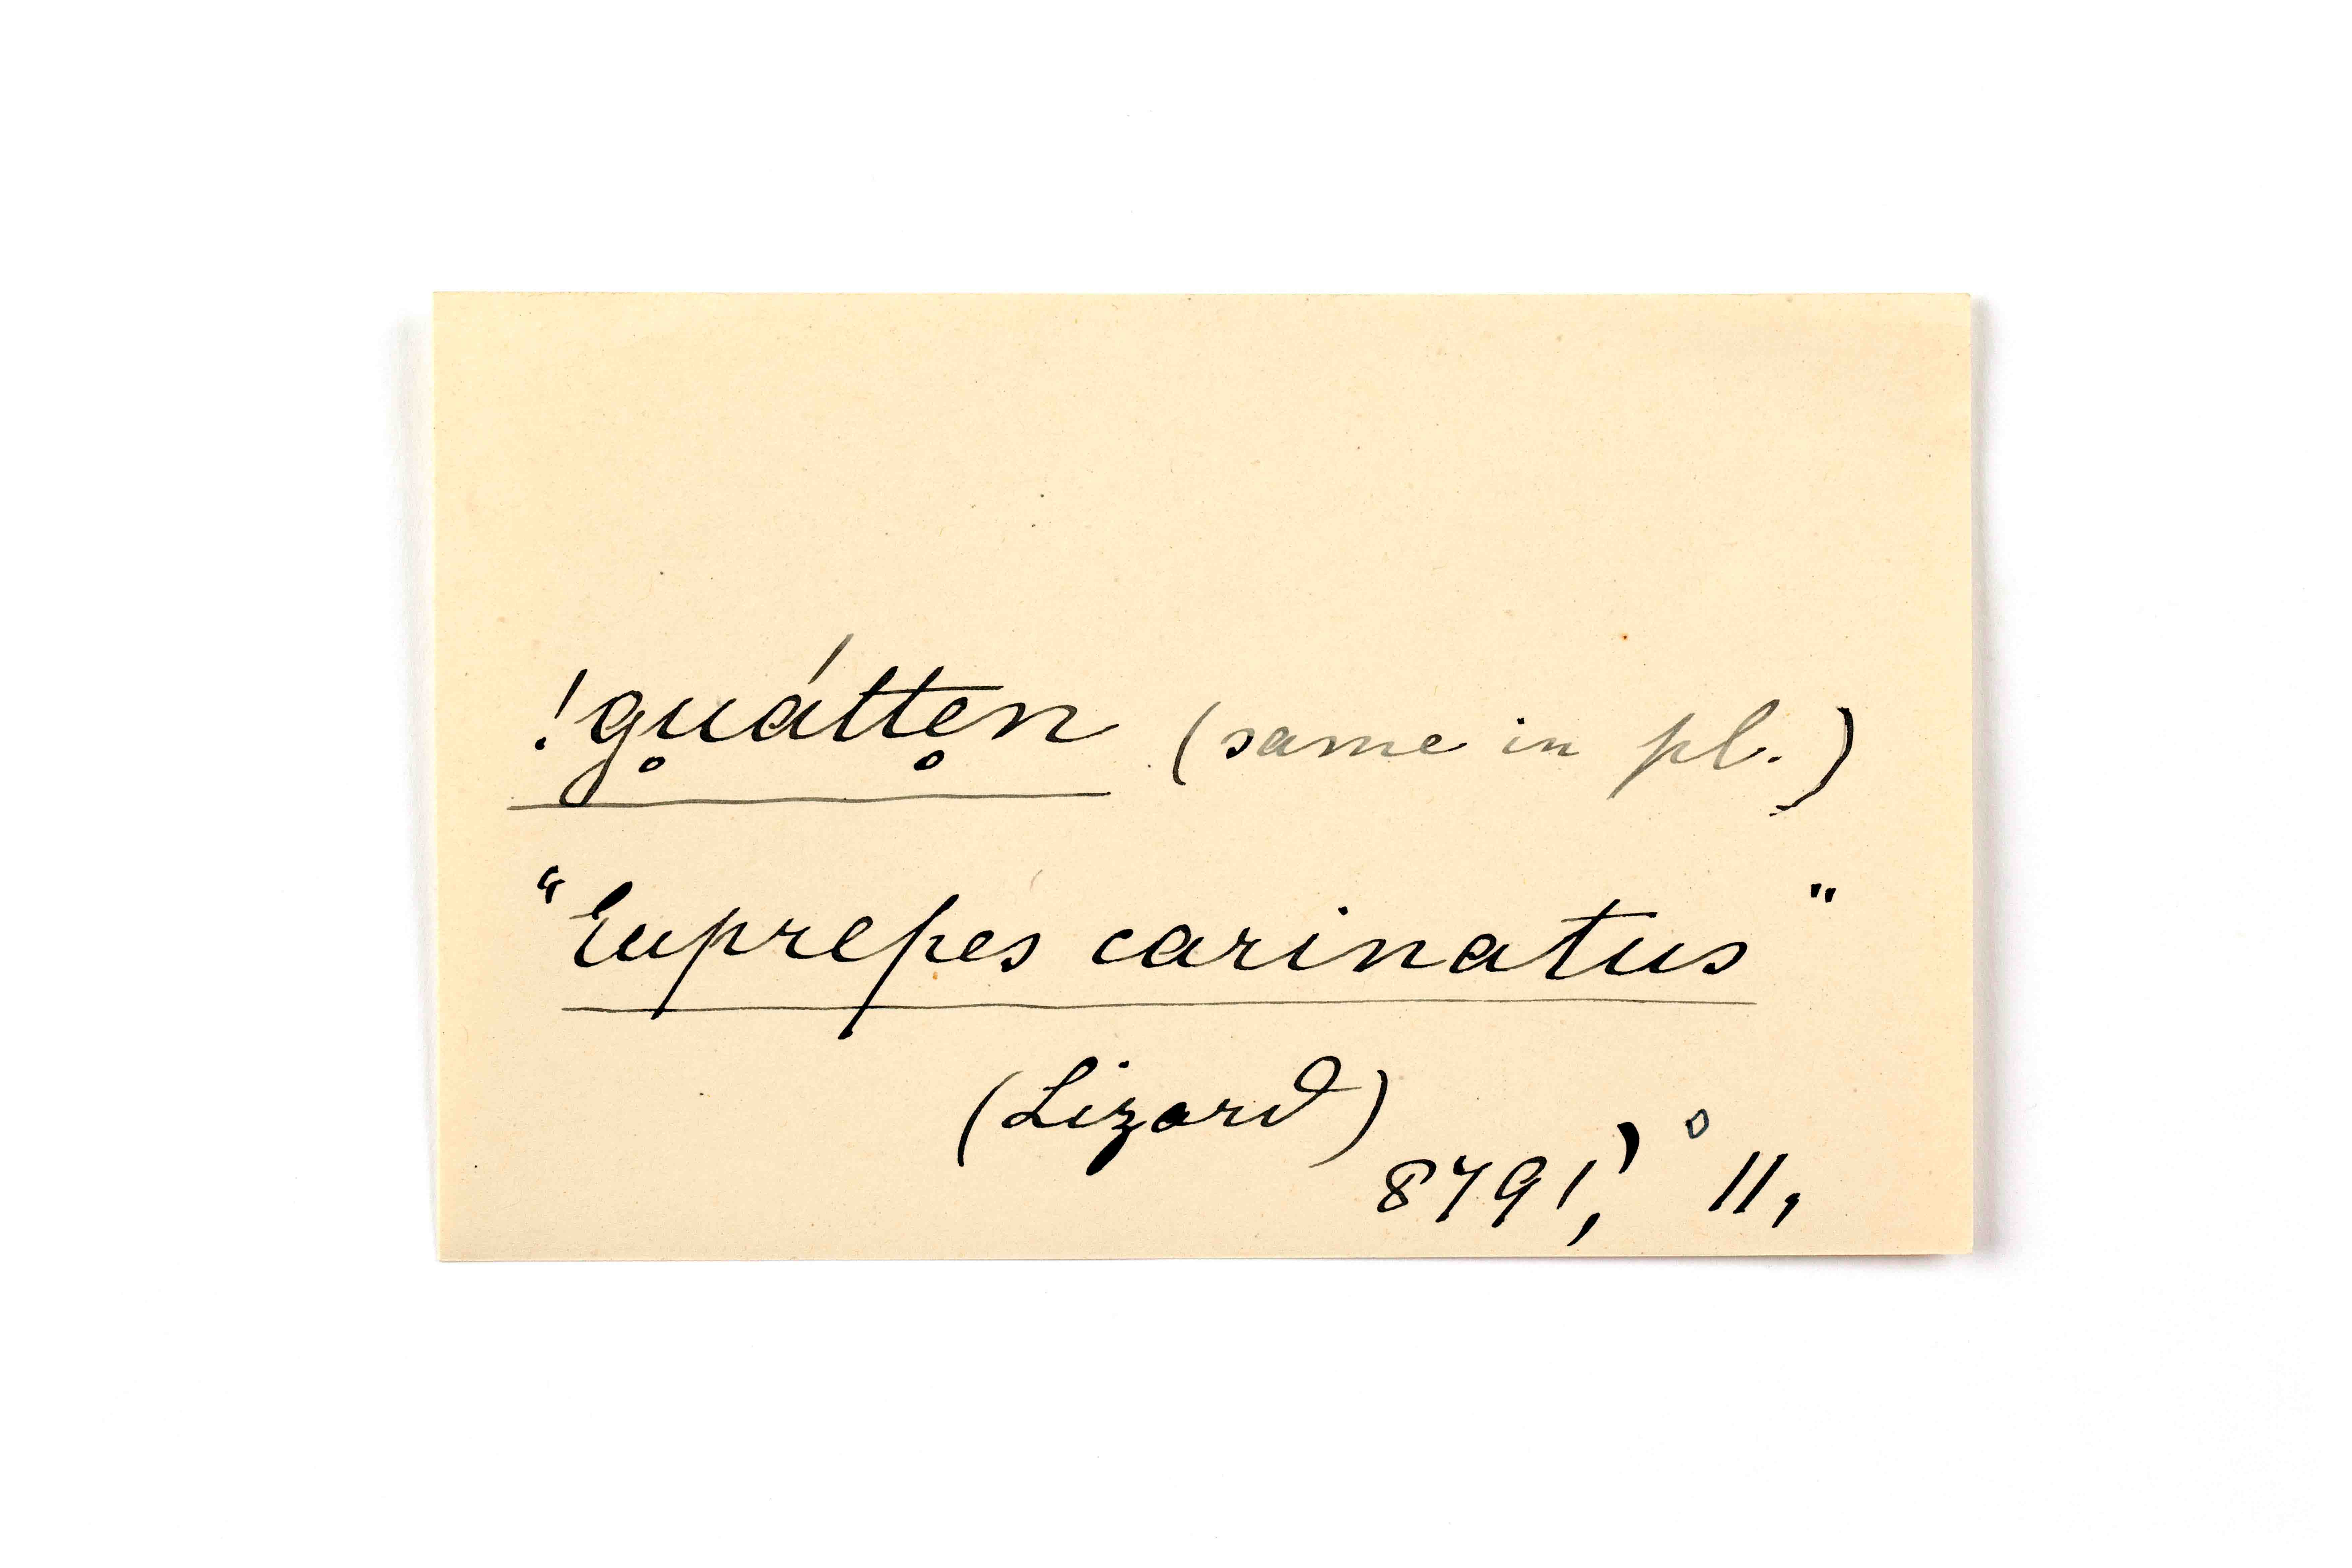 !gu̥átte̥n (same in pl.)
"Euprepes carinatus"
(Lizard)
8791,' ° 11,